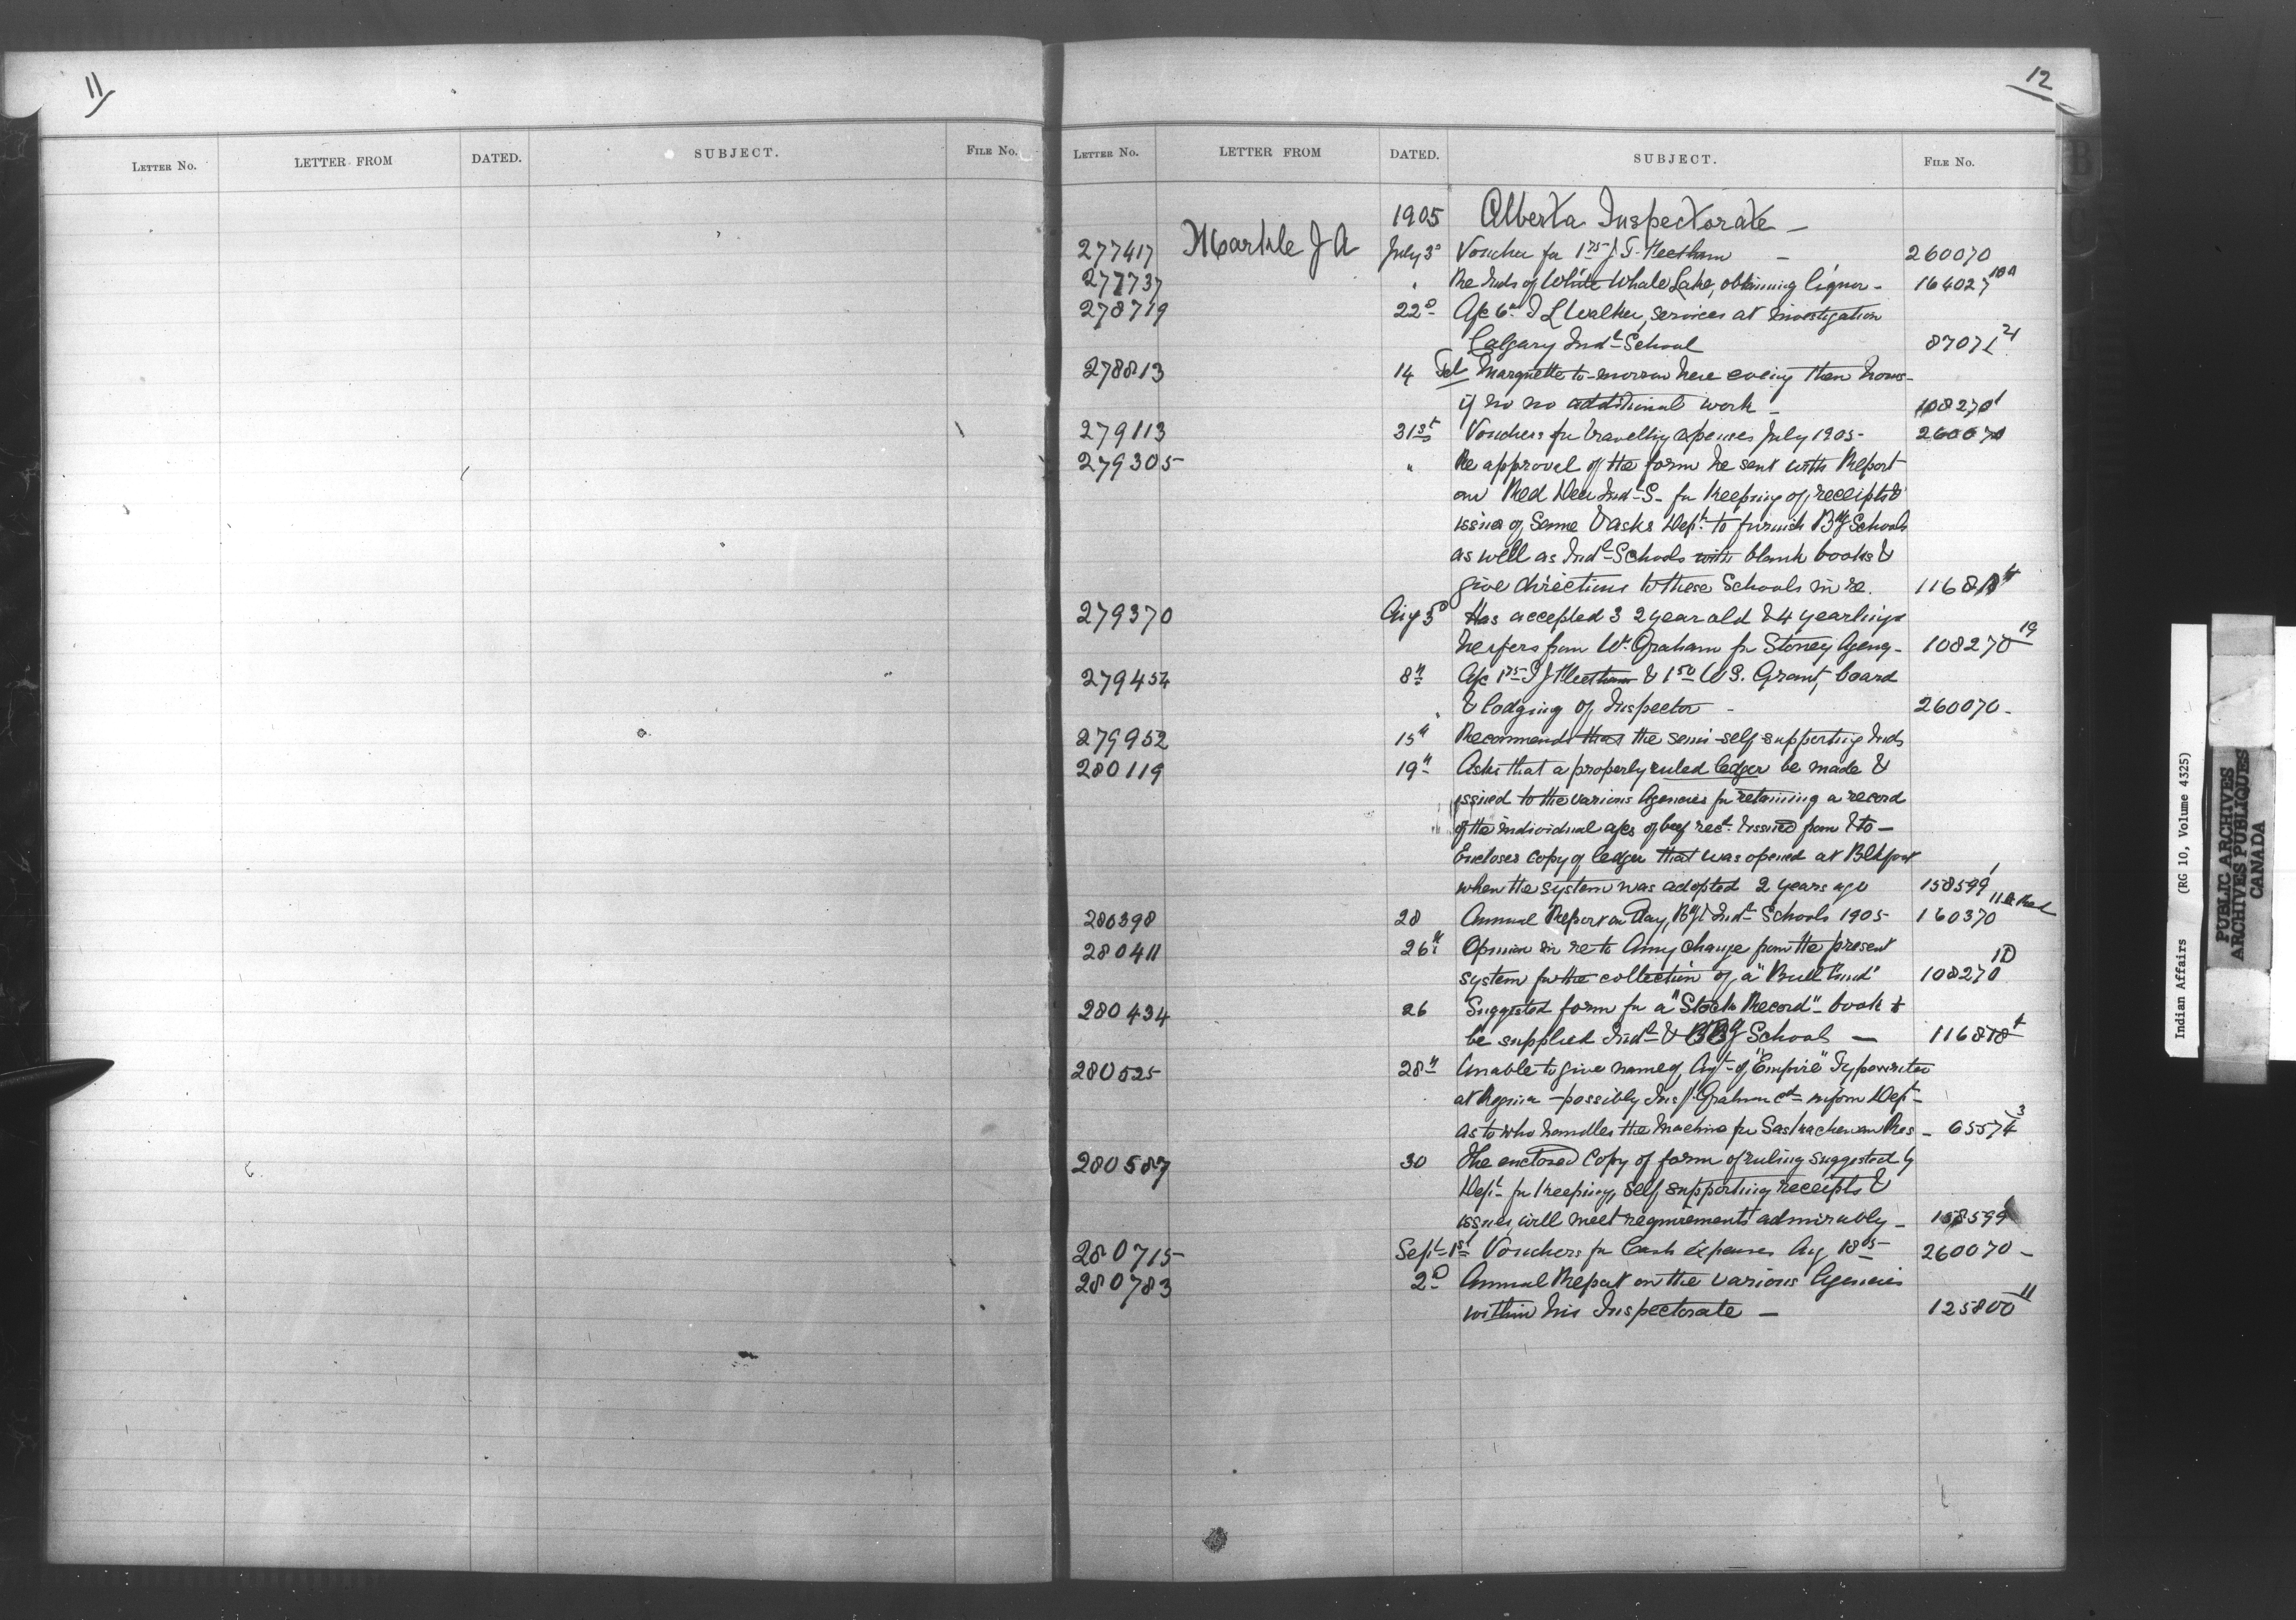 11
12
LETTER No. LETTER FROM DATED. SUBJECT. FILE No.
LETTER No. LETTER FROM DATED. SUBJECT. FILE No.
1905 Alberta Inspectorate –
277417 Markle J A July 3d Voucher for 1.75 J. T. Keetham – 260070
277737 " Re Inds of White Whale Lake, obtaining liquor – 164027 10A
278719 22d A/c 6.00 J L Walker, services at Investigation
Calgary Indl School 87071 21
278813 14 Tel Marquette to-morrow here evening then home –
if no no additional work – 108270 1
279113 31st Vouchers for travelling expenses July 1905 – 260070
279305 " Re approval of the form he sent with Report
on Red Deer Indl S. for keeping of receipts &
issues of same & asks Dept. to furnish Bdg Schools
as well as Indl Schools with blank books &
give directions to these Schools in re. 11681 4
279370 Aug 5th Has accepted 3 2 year old & 4 yearlings
heifers from W. Graham for Stoney Agency – 108270 19
279454 8th A/c 1.75 J J Keetham & 1.50 W S. Grant, board
& lodging of Inspector – 260070 –
279952 15th Recommends that the semi-self supporting Inds
280119 19th Asks that a properly ruled ledger be made &
issued to the various Agencies for retaining a record
of the individual a/cs of beef recd. & issued from & to –
Encloses copy of ledger that was opened at Blkfoot
when the system was adopted 2 years ago 158599 1
280398 28 Annual Report on Day, Bdg & Indl Schools 1905 – 160370
280411 26th Opinion in re to Any change from the present
system for the collection of a "Bull Fund" 108270 1D
280434 26 Suggested form for a "Stock Record" book to
be supplied Indl & Bdg Schools — 116818 4
280525 28th Unable to give name of Agt. of "Empire" Typewriter
at Regina – possibly Insp. Graham cd inform Dept –
as to who handles the machine for Saskachewan Res – 65574 3
280587 30 The enclosed Copy of form of ruling suggested by
Dept. for keeping, self supporting receipts &
issues, will meet requirements admirably – 158599
280715 Sept 1st Vouchers for Cash Expenses Aug 18.05 260070 –
280783 2d Annual Report on the various Agencies
within his Inspectorate — 125800 11
Indian Affairs (RG 10, Volume 4325)
PUBLIC ARCHIVES
ARCHIVES PUBLIQUES
CANADA